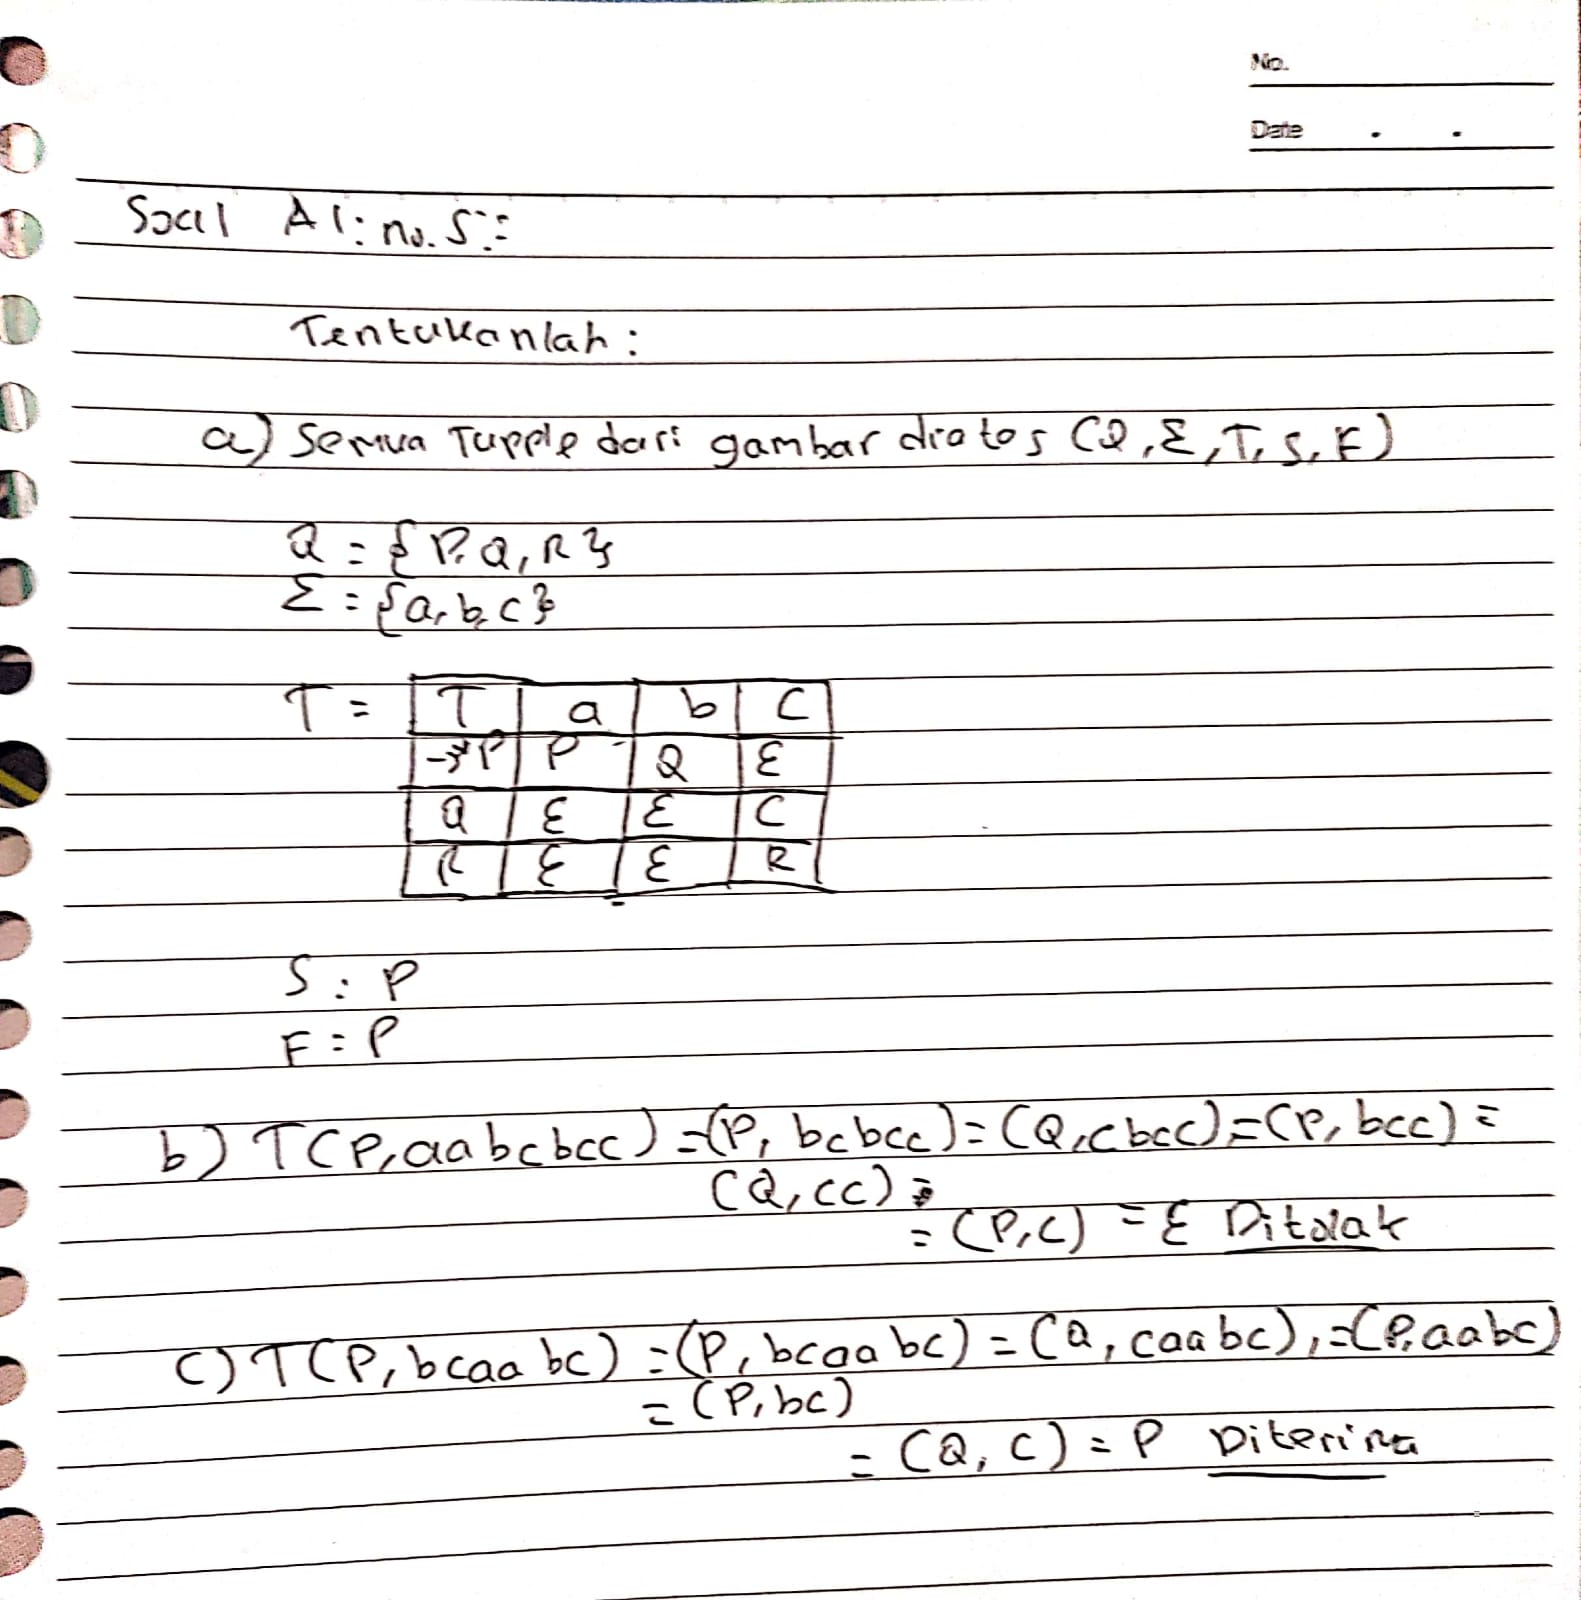 No.
Date . .
Soal A1: no. 5 :
Tentukanlah :
a) Semua Tupple dari gambar diatos (Q, Σ, T, S, F)
Q = {P, Q, R}
Σ = {a, b, c}
T = T a b C
→*P P Q ε
Q ε ε C
R ε ε R
S : P
F = P
b) T(P, aabcbcc) = (P, bcbcc) = (Q, cbcc) = (P, bcc) =
(Q, cc) =
= (P, c) = ε Ditolak
c) T(P, bcaabc) = (P, bcaabc) = (Q, caabc), = (P, aabc)
= (P, bc)
= (Q, C) = P Diterima